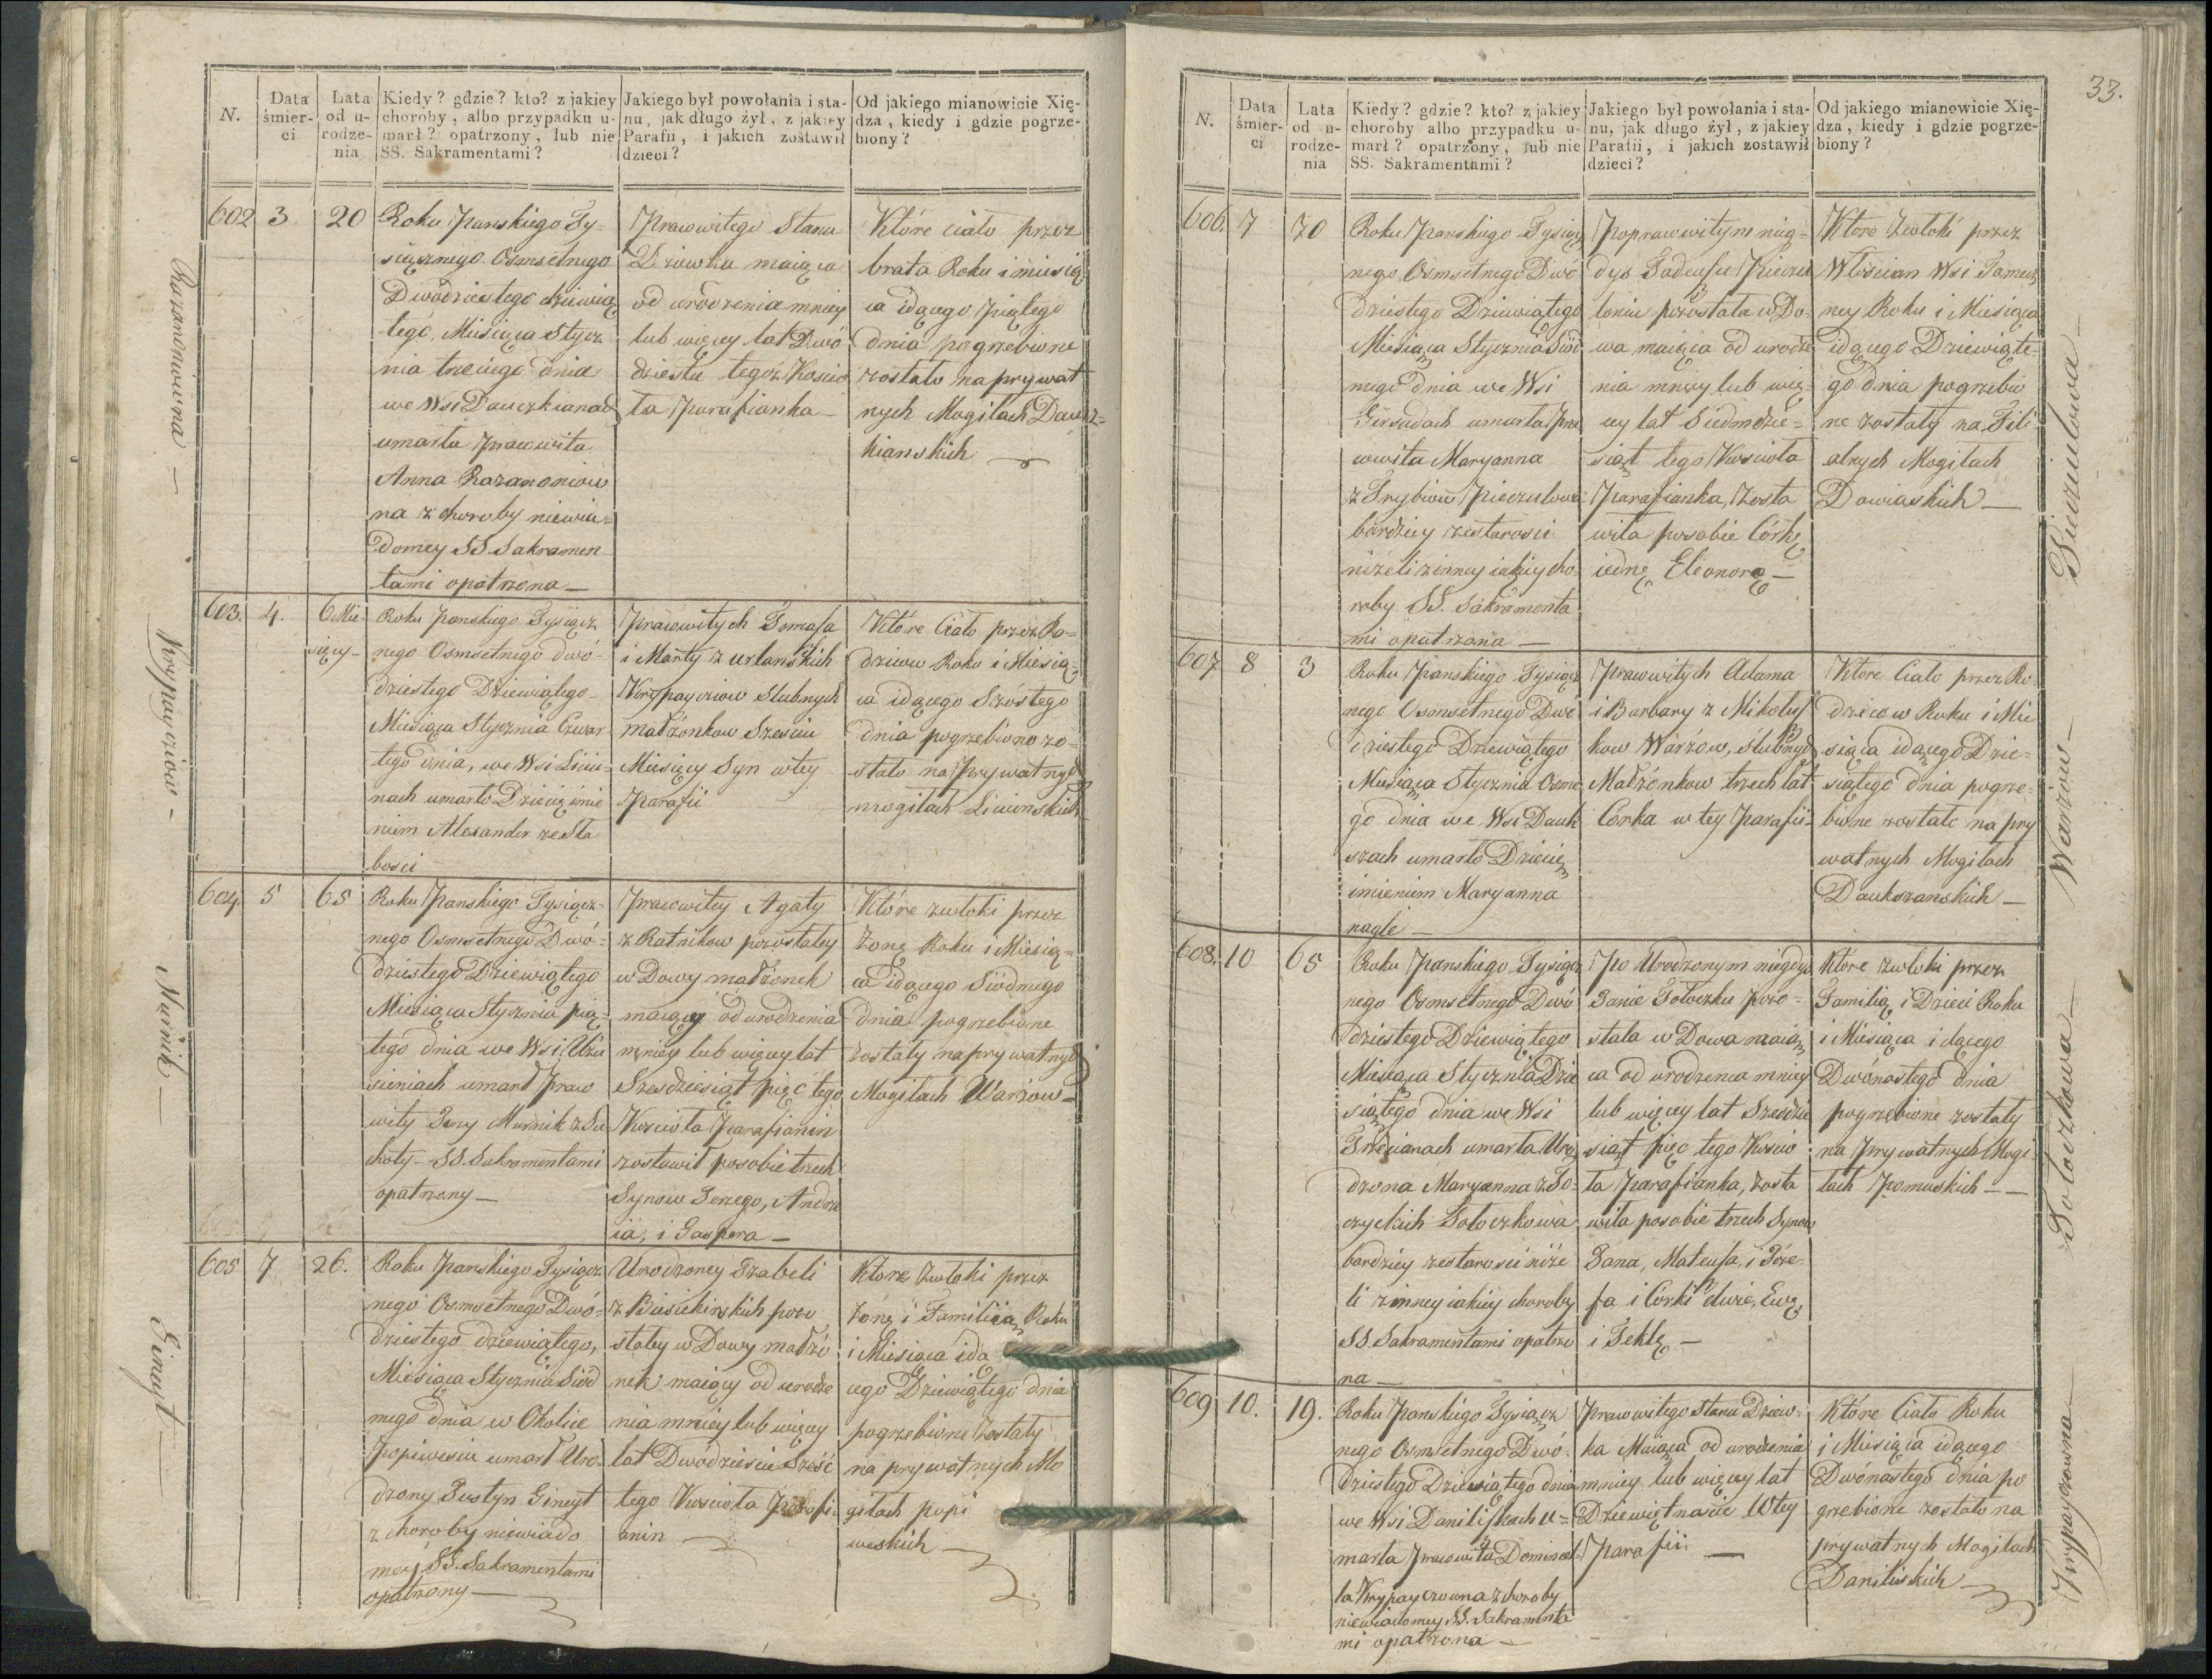 N.
Data śmier- ci
Lata od u- rodze- nia
Kiedy? gdzie? kto? z jakiey
choroby, albo przypadku u-
marł? opatrzony, lub nie
SS. Sakramentami?
Jakiego był powołania i sta-
nu, jak długo żył, z jakiey
Parafii, i jakich zostawił
dzieci?
Od jakiego mianowicie Xię-
dza, kiedy i gdzie pogrze-
biony?
Razanoniowna —
602
3
20
Roku Panskiego Ty-
siącznego Osmsetnego
Dwódziestego dziewią
tego, Miesiąca Stycz
nia trzeciego dnia
we Wsi Dauczkianach
umarła Pracowita
Anna Razanoniow
na z choroby niewia-
domey SS Sakramen
tami opatrzona —
Pracowitego Stanu
Dziewka maiąca
od urodzenia mniey
lub więcey lat Dwó
dziestu tegoż Koscio
ła Parafianka —
Które ciało przez
brata Roku i miesią
ca idącego piątego
dnia pogrzebione
zostało na prywat
nych Mogiłach Daucz-
kianskich —
Krypayciów -
603.
4.
6 Mie
sięcy -
Roku panskiego Tysiącz
nego Osmsetnego dwó-
dziestego Dziewiątego
Miesiąca Stycznia Czwar
tego dnia, we Wsi Liciu-
nach umarło Dziecię imie
niem Alexander ze Sła
bosci
Pracowitych Tomasza
i Marty z Urłanskich
Krypayciow Slubnych
małżonkow Szesciu
Miesięcy Syn w tey
Parafii
Które Ciało przez Ro-
dzicow Roku i Miesią-
ca idącego Szóstego
dnia pogrzebiono zo-
stało na Prywatnych
mogiłach Liciunskich
Murnik —
604.
5
65
Roku Panskiego Tysiącz-
nego Osmsetnego Dwó-
dziestego Dziewiątego
Miesiąca Stycznia pią-
tego dnia we Wsi Użu
sieniach umarł Praco
wity Jerzy Murnik z Su
choty - SS. Sakramentami
opatrzony —
Pracowitey Agaty
z Ratnikow pozostałey
w Dowy małżonek
maiący od urodzenia
mniey lub więcey lat
Szesdziesiąt pięć tego
Koscioła Parafianin
zostawił po sobie trzech
Synow Jerzego, Andrze
ia, i Gaspera —
Które zwłoki przez
Żonę Roku i Miesią-
ca idącego Siódmego
dnia pogrzebione
zostały na prywatnych
Mogiłach Warżow —
Gineyt —
605
7
26.
Roku Panskiego Tysiącz
nego Osmsetnego Dwó-
dziestego dziewiątego,
Miesiąca Stycznia Siód
mego dnia w Okolice
Popiwesiu umarł Uro-
dzony Justyn Gineyt
z choroby niewiado
mey SS. Sakramentami
opatrzony —
Urodzoney Izabeli
z Biesiekirskich pozo
stałey w Dowy małżo
nek maiący od urodze
nia mniey lub więcey
lat Dwódziescie Sześć
tego Koscioła Parafi-
anin —
Które Zwłoki przez
Żonę i Familiią Roku
i Miesiąca idą
cego Dziewiątego dnia
pogrzebione Zostały
na prywatnych Mo
giłach popi
weskich —
33.
N.
Data śmier- ci
Lata od u- rodze- nia
Kiedy? gdzie? kto? z jakiey
choroby albo przypadku u-
marł? opatrzony, lub nie
SS. Sakramentami?
Jakiego był powołania i sta-
nu, jak długo żył, z jakiey
Parafii, i jakich zostawił
dzieci?
Od jakiego mianowicie Xię-
dza, kiedy i gdzie pogrze-
biony?
606.
7
70
Roku Panskiego Tysiącz
nego Osmsetnego Dwó
dziestego Dziewiątego
Miesiąca Stycznia Siód
mego dnia we Wsi
Girsudach umarła Pra
cowita Maryanna
z Grybiow Pieczulowa
bardziey ze starosci
niżeli z inney iakiey cho-
roby SS. Sakramenta
mi opatrzona —
Po pracowitym nieg-
dys Tadeuszu Pieczu
loniu pozostała w Do-
wa maiąca od urodze
nia mniey lub wię-
cey lat Siedmdzie-
siąt tego Koscioła
Parafianka, Zosta
wiła po sobie Córkę
iednę Eleonorę —
Które Zwłoki przez
Włoscian Wsi Tamecz
ney Roku i Miesiąca
idącego Dziewiąte-
go dnia pogrzebio
ne zostały na Fili
alnych Mogiłach
Dowiaskich —
Pieczulowa —
607
8
3
Roku Panskiego Tysiącz
nego Osmsetnego Dwó
dziestego Dziewiątego
Miesiąca Stycznia Osme
go dnia we Wsi Dauk
szach umarło Dziecię
imieniem Maryanna
nagle —
Pracowitych Adama
i Barbary z Mikołusz
kow Warżow, ślubnych
Małżonkow trzech lat
Corka w tey Parafii —
Które Ciało przez Ro-
dzicow Roku i Mie
siąca idącego Dzie-
siątego dnia pogrze-
bione zostałe na pry
watnych Mogiłach
Daukszanskich —
Warżow —
608.
10
65
Roku Panskiego Tysiącz
nego Osmsetnego Dwó
dziestego Dziewiątego
Miesiąca Stycznia Dzie
siątego dnia we Wsi
Trzecianach umarła Uro
dzona Maryanna z So-
czyckich Tołoczkowa
bardziey ze starosci niże
li z inney iakiey choroby
SS. Sakramentami opatrzo
na —
Po Urodzonym niegdyś
Janie Tołoczku pozo-
stała w Dowa maią
ca od urodzenia mniey
lub więcey lat Szesdzie
siąt pięc tego Koscio
ła Parafianka, Zosta
wiła po sobie trzech Synow
Jana, Mateusza, i Józe-
fa i Córki dwie, Ewę
i Teklę —
Które Zwłoki przez
Familią i Dzieci Roku
i Miesiąca idącego
Dwónastego dnia
pogrzebione zostały
na Prywatnych Mogi-
łach Pomuskich —
Tołoczkowa —
609
10.
19.
Roku Panskiego Tysiącz
nego Osmsetnego Dwó-
dziestego Dziewiątego dnia
we Wsi Daniliszkach u-
marła Pracowita Domincel-
la Krypayczowna z choroby
niewiadomey SS. Sakramenta
mi opatrzona —
Pracowitego Stanu Dziew-
ka Maiąca od urodzenia
mniey lub więcey lat
Dziewiętnascie Wtey
Parafii. —
Które Ciało Roku
i Miesiąca idącego
Dwónastego dnia po
grzebione zostało na
prywatnych Mogiłach
Daniliskich —
Krypayczowna —